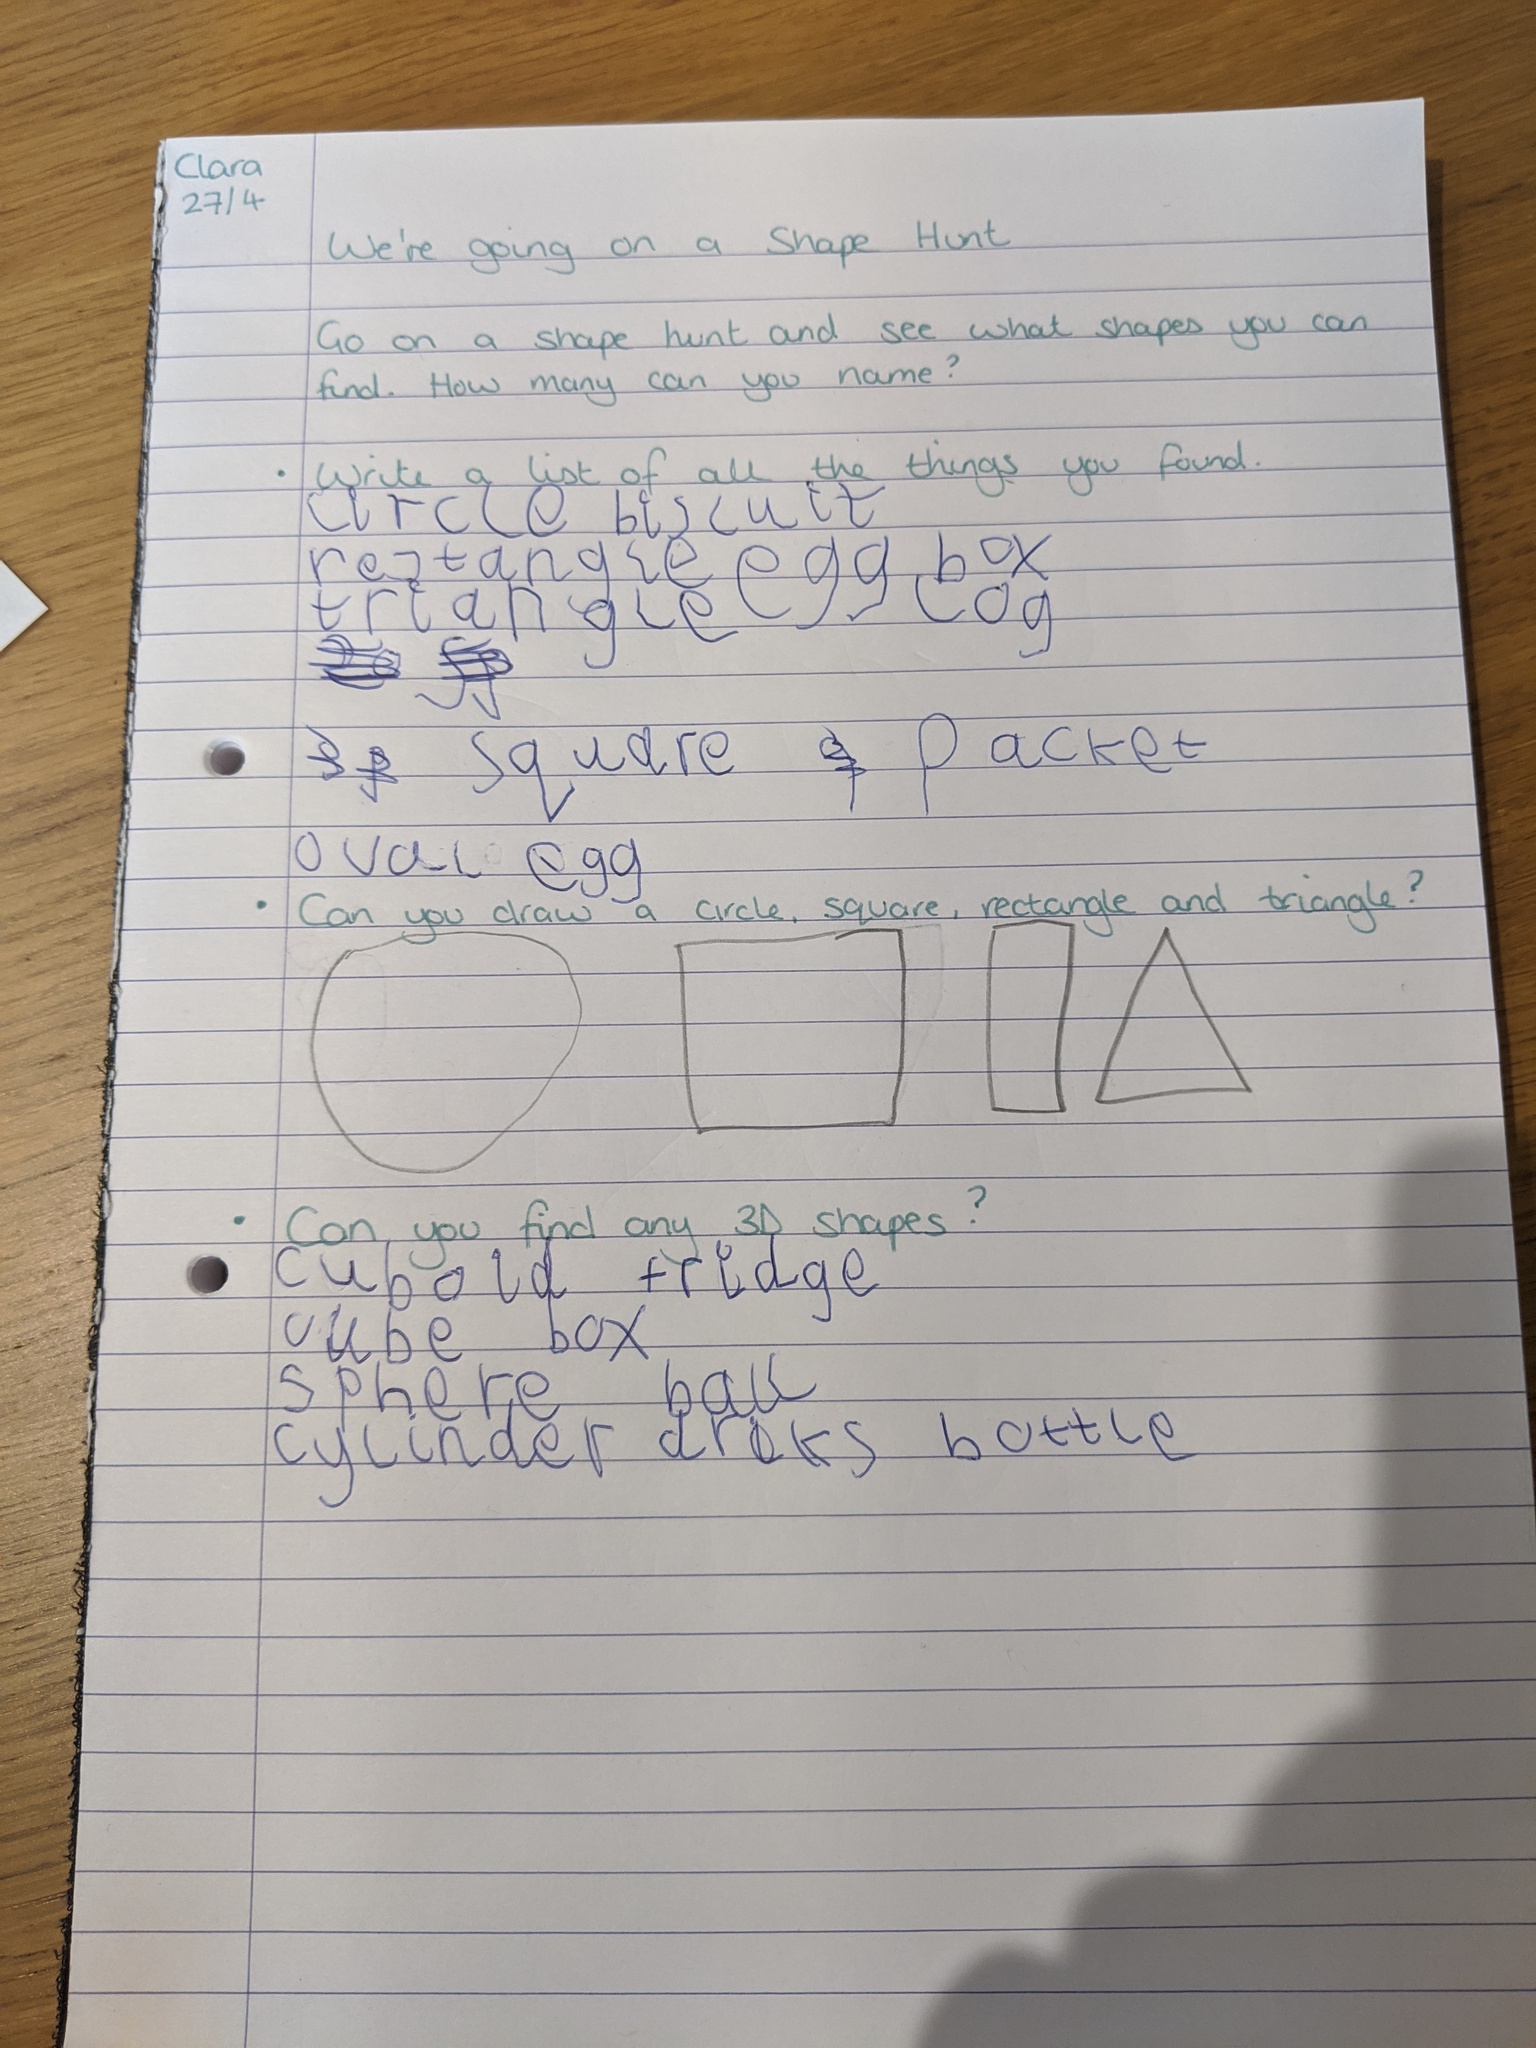 Clara
27/4
We're going on a Shape Hunt
Go on a shape hunt and see what shapes you can
find. How many can you name?
• Write a list of all the things you found.
circle biscuit
rectangle egg box
triangle cog
square packet
oval egg
• Can you draw a circle, square, rectangle and triangle?
• Can you find any 3D shapes?
cuboid fridge
cube box
sphere ball
cylinder bottle